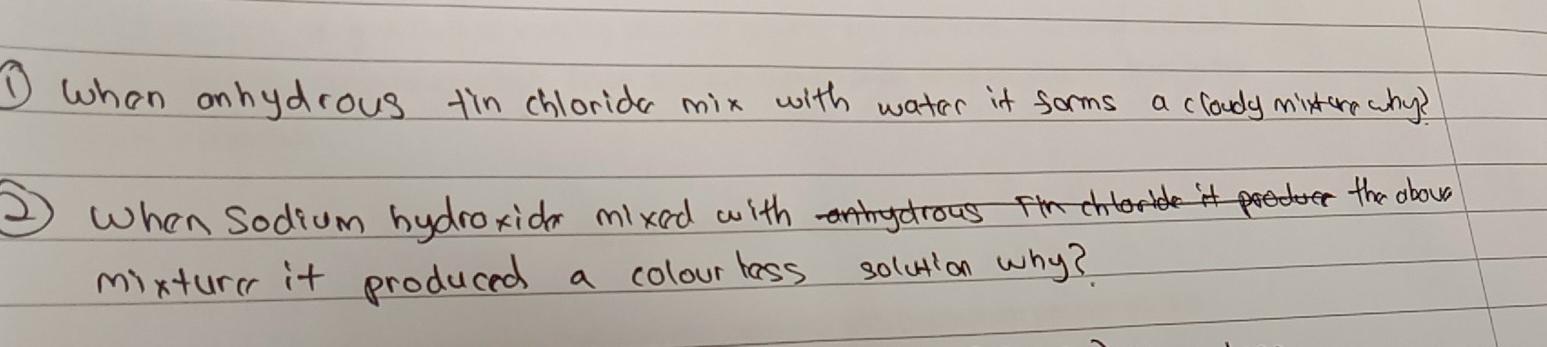 ① When anhydrous tin chloride mix with water it forms a cloudy mixture why?
② When Sodium hydroxide mixed with anhydrous Tin chloride it produce the above
mixture it produced a colourless solution why?